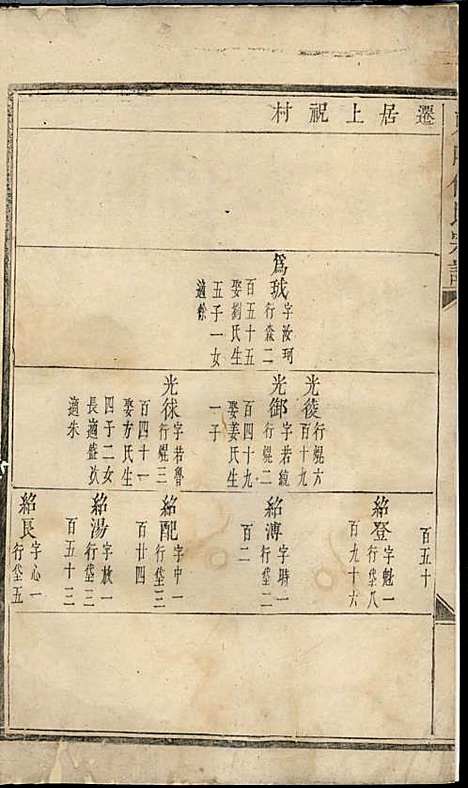 遷居上祝村
為珹
字汝珂
行森二
百五十五
娶劉氏生
五子一女
適徐
光後
行焜六
百十九
光御
字若統
行焜二
百四十九
娶姜氏生
一子
光俅
字若魯
行焜三
百四十一
娶方氏生
四子二女
長適
適朱
百五十
紹登
字魁一
行垈八
百九十六
紹溥
字時一
行垈二
百二
紹配
字中一
行垈三
百廿四
紹湯
字放一
行垈三
百五十三
紹良
字心一
行垈五